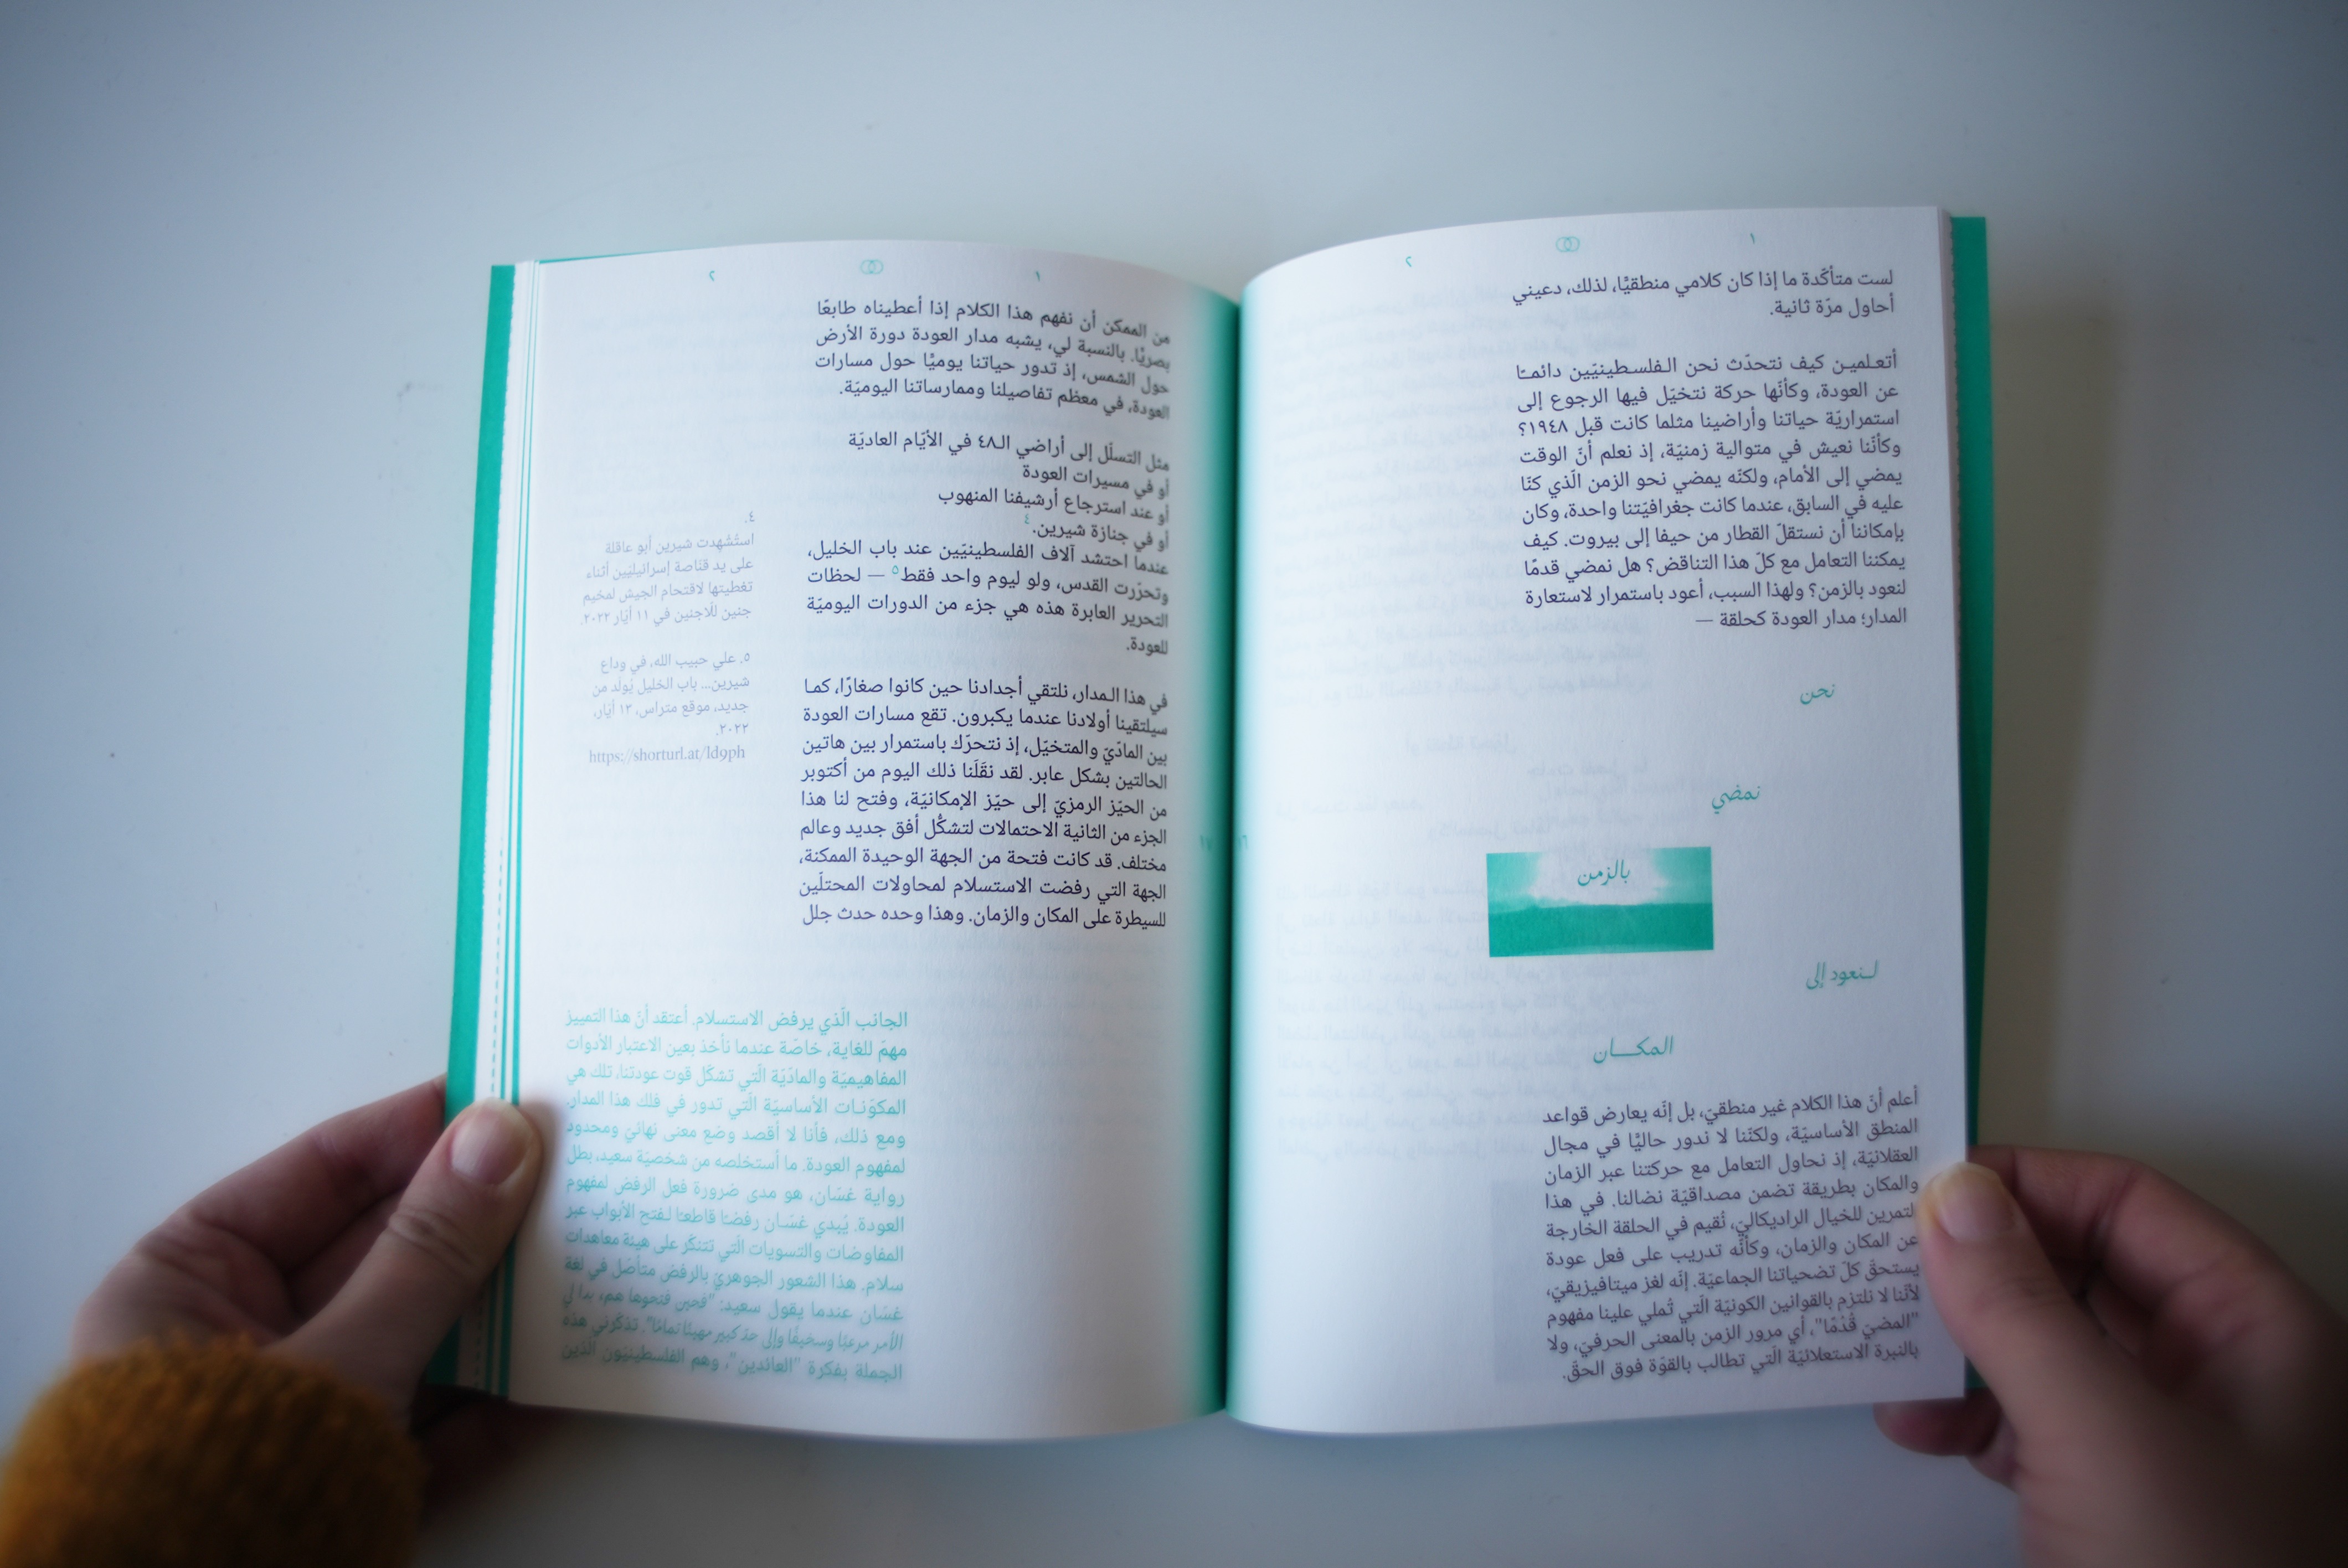 ١
٢
لست متأكّدة ما إذا كان كلامي منطقيًّا، لذلك، دعيني
أحاول مرّة ثانية.
أتعلمين كيف نتحدّث نحن الفلسطينيّين دائمـًا
عن العودة، وكأنّها حركة نتخيّل فيها الرجوع إلى
استمراريّة حياتنا وأراضينا مثلما كانت قبل ١٩٤٨؟
وكأنّنا نعيش في متوالية زمنيّة، إذ نعلم أنّ الوقت
يمضي إلى الأمام، ولكنّه يمضي نحو الزمن الّذي كنّا
عليه في السابق، عندما كانت جغرافيّتنا واحدة، وكان
بإمكاننا أن نستقلّ القطار من حيفا إلى بيروت. كيف
يمكننا التعامل مع كلّ هذا التناقض؟ هل نمضي قدمًا
لنعود بالزمن؟ ولهذا السبب، أعود باستمرار لاستعارة
المدار؛ مدار العودة كحلقة —
نحن
نمضي
بالزمن
لـنعود إلى
المكـــان
أعلم أنّ هذا الكلام غير منطقيّ، بل إنّه يعارض قواعد
المنطق الأساسيّة، ولكنّنا لا ندور حاليًّا في مجال
العقلانيّة، إذ نحاول التعامل مع حركتنا عبر الزمان
والمكان بطريقة تضمن مصداقيّة نضالنا. في هذا
التمرين للخيال الراديكاليّ، نُقيم في الحلقة الخارجة
عن المكان والزمان، وكأنّه تدريب على فعل عودة
يستحقّ كلّ تضحياتنا الجماعيّة. إنّه لغز ميتافيزيقيّ،
لأنّنا لا نلتزم بالقوانين الكونيّة الّتي تُملي علينا مفهوم
"المضيّ قُدُمًا"، أي مرور الزمن بالمعنى الحرفيّ، ولا
بالنبرة الاستعلائيّة الّتي تطالب بالقوّة فوق الحقّ.
١٦
١٧
١
٢
من الممكن أن نفهم هذا الكلام إذا أعطيناه طابعًا
بصريًّا. بالنسبة لي، يشبه مدار العودة دورة الأرض
حول الشمس، إذ تدور حياتنا يوميًّا حول مسارات
العودة، في معظم تفاصيلنا وممارساتنا اليوميّة.
مثل التسلّل إلى أراضي الـ٤٨ في الأيّام العاديّة
أو في مسيرات العودة
أو عند استرجاع أرشيفنا المنهوب
أو في جنازة شيرين.٤
عندما احتشد آلاف الفلسطينيّين عند باب الخليل،
وتحرّرت القدس، ولو ليوم واحد فقط٥ — لحظات
التحرير العابرة هذه هي جزء من الدورات اليوميّة
للعودة.
في هذا المدار، نلتقي أجدادنا حين كانوا صغارًا، كمـا
سيلتقينا أولادنا عندما يكبرون. تقع مسارات العودة
بين المادّيّ والمتخيّل، إذ نتحرّك باستمرار بين هاتين
الحالتين بشكل عابر. لقد نقّلَنا ذلك اليوم من أكتوبر
من الحيّز الرمزيّ إلى حيّز الإمكانيّة، وفتح لنا هذا
الجزء من الثانية الاحتمالات لتشكُّل أفق جديد وعالم
مختلف. قد كانت فتحة من الجهة الوحيدة الممكنة،
الجهة التي رفضت الاستسلام لمحاولات المحتلّين
للسيطرة على المكان والزمان. وهذا وحده حدث جلل
٤.
استُشْهِدت شيرين أبو عاقلة
على يد قنّاصة إسرائيليّين أثناء
تغطيتها لاقتحام الجيش لمخيم
جنين للّاجئين في ١١ أيّار ٢٠٢٢.
٥. علي حبيب الله، في وداع
شيرين... باب الخليل يُولَد من
جديد، موقع متراس، ١٣ أيّار،
٢٠٢٢.
https://shorturl.at/ld9ph
الجانب الّذي يرفض الاستسلام. أعتقد أنّ هذا التمييز
مهمّ للغاية، خاصّة عندما نأخذ بعين الاعتبار الأدوات
المفاهيميّة والمادّيّة الّتي تشكّل قوت عودتنا، تلك هي
المكوّنـات الأساسيّة الّتي تدور في فلك هذا المدار.
ومع ذلك، فأنا لا أقصد وضع معنى نهائيّ ومحدود
لمفهوم العودة. ما أستخلصه من شخصيّة سعيد، بطل
رواية غسّان، هو مدى ضرورة فعل الرفض لمفهوم
العودة. يُبدي غسّـان رفضـًا قاطعـًا لـفتح الأبواب عبر
المفاوضات والتسويات الّتي تتنكّر على هيئة معاهدات
سلام. هذا الشعور الجوهريّ بالرفض متأصّل في لغة
غسّان عندما يقول سعيد: "فحين فتحوها هم، بدا لي
الأمر مرعبًا وسخيفًا وإلى حدّ كبير مهينًا تمامًا". تذكّرني هذه
الجملة بفكرة "العائدين"، وهم الفلسطينيّون الّذين